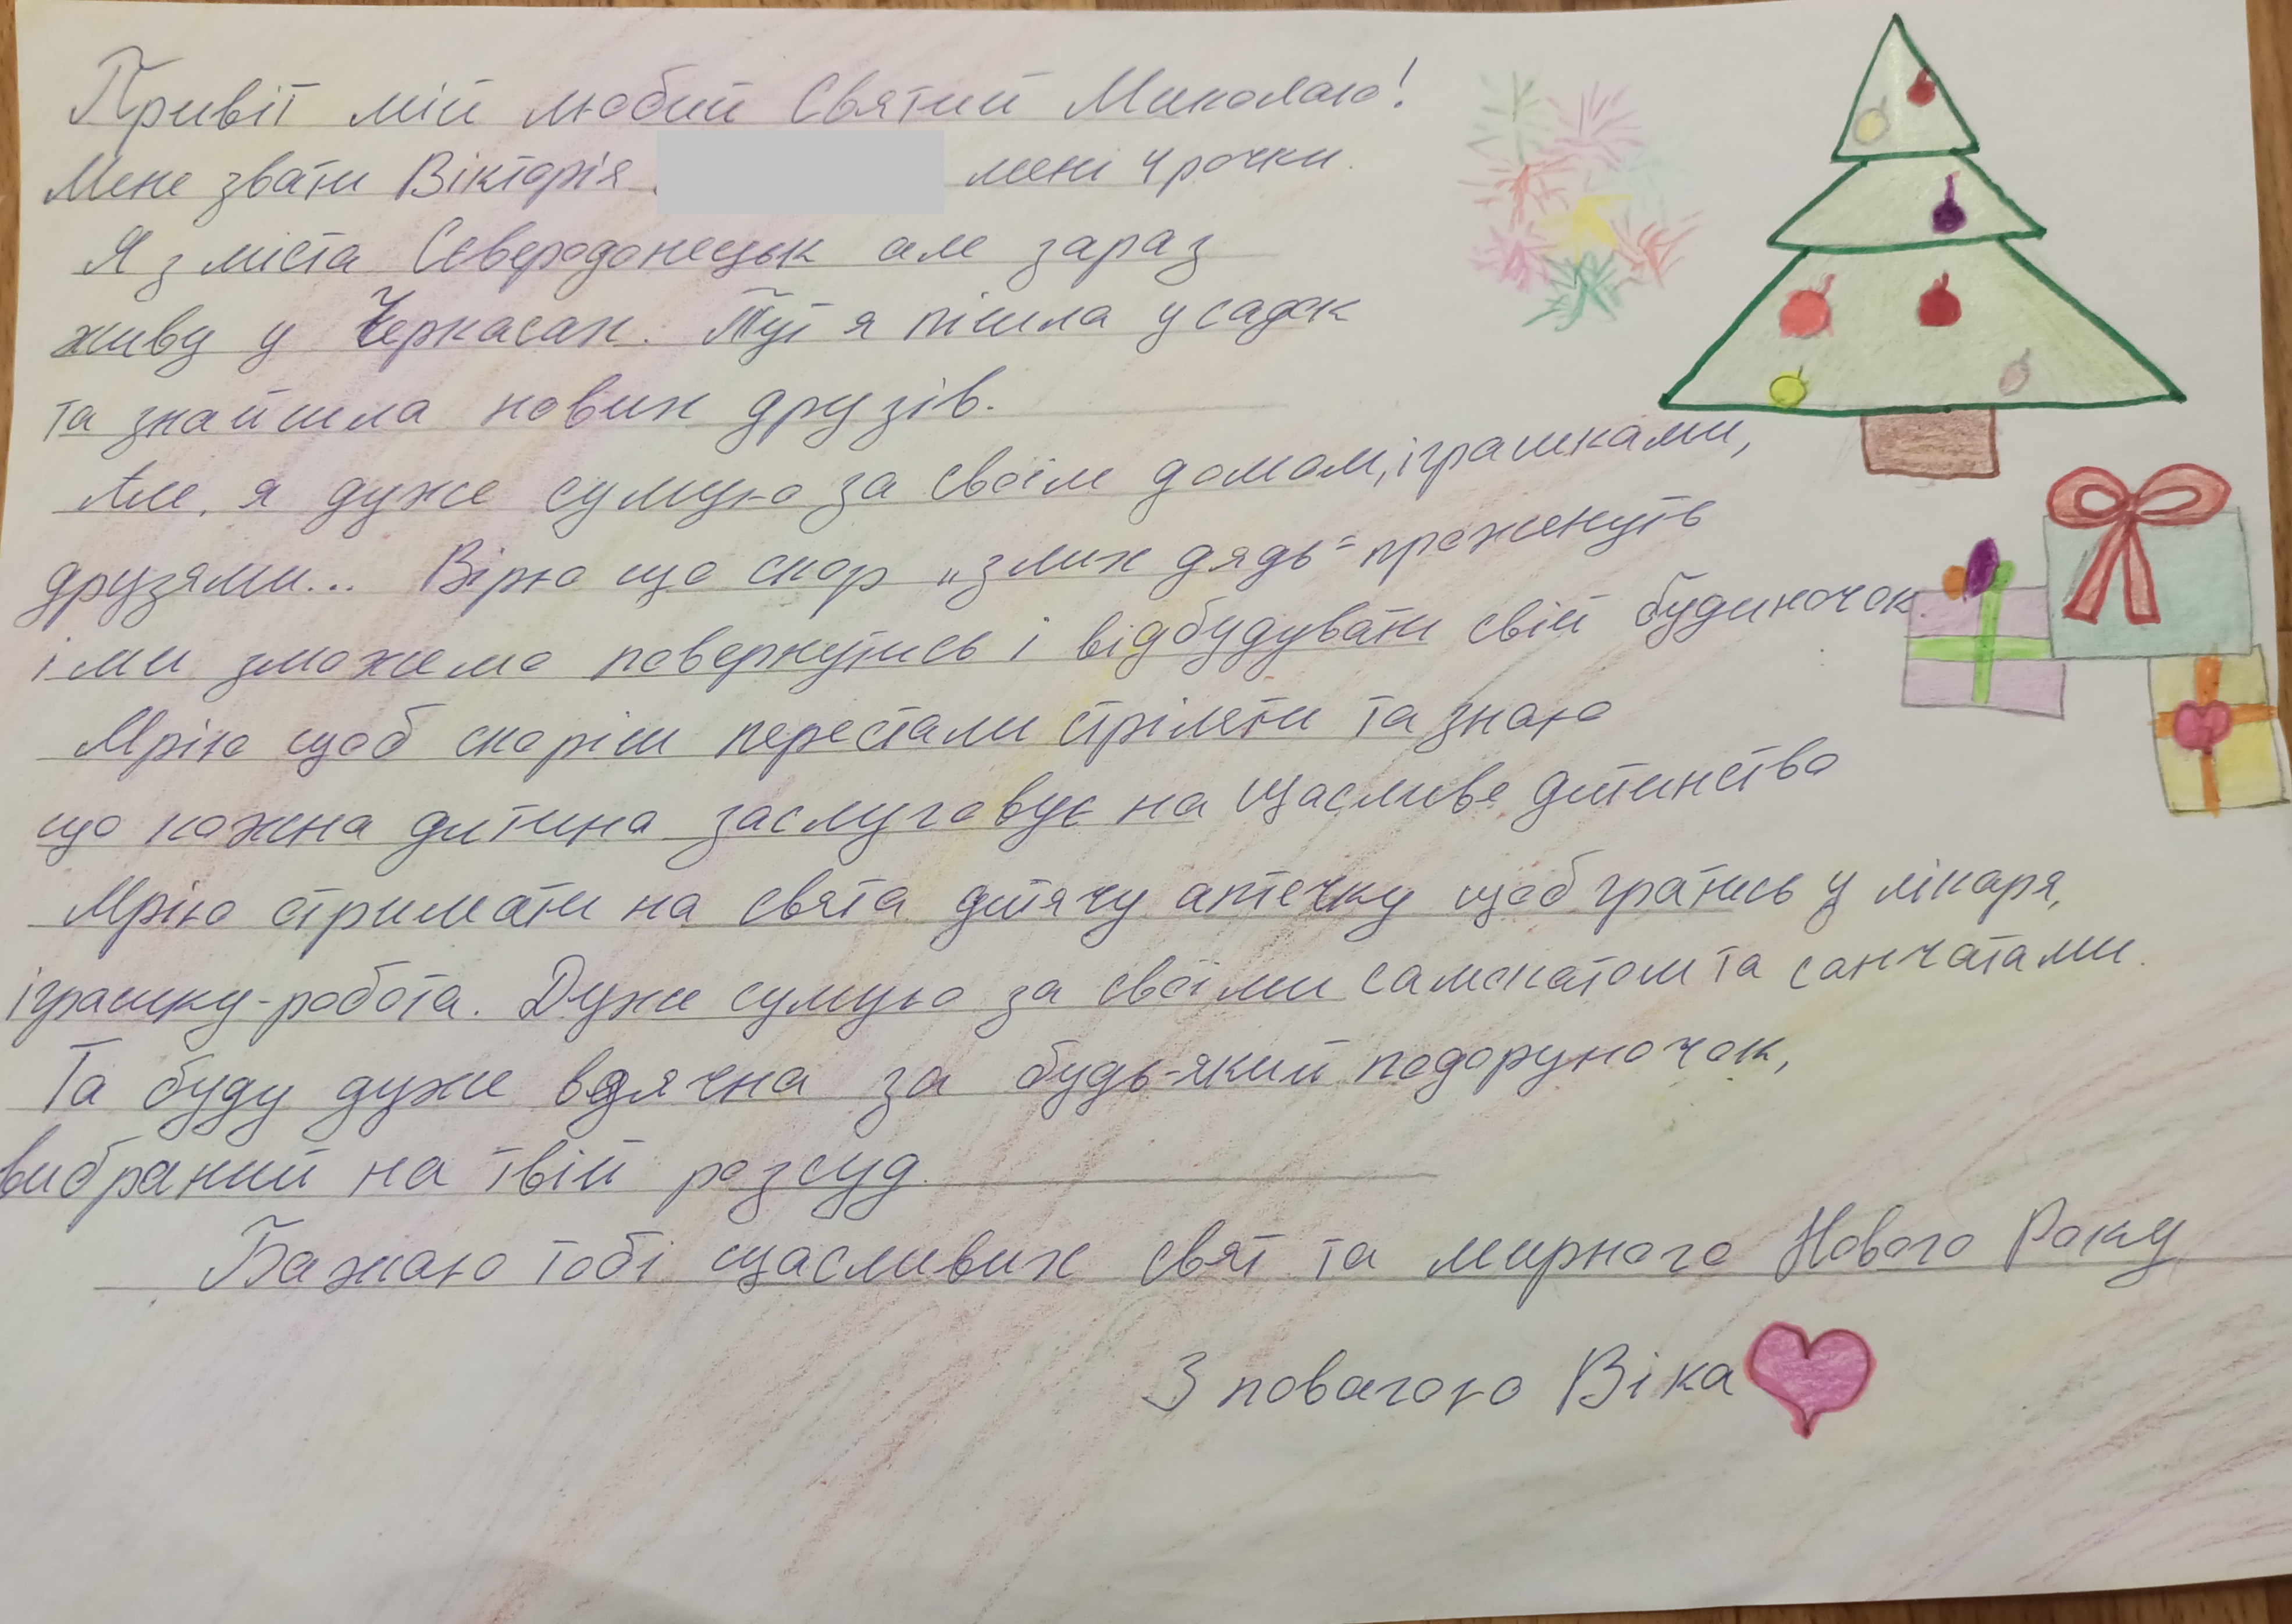 Привіт мій любий Святий Миколаю!
Мене звати Вікторія мені 4 рочки.
Я з міста Сєверодонецьк але зараз
живу у Черкасах. Тут я пішла у садок
та знайшла нових друзів.
Але, я дуже сумую за своїм домом, іграшками,
друзями... Вірю що скор „злих дядь" проженуть
і ми зможемо повернутись і відбудувати свій будиночок.
Мрію щоб скоріш перестали стріляти та знаю
що кожна дитина заслуговує на щасливе дитинство
Мрію отримати на свята дитячу аптечку щоб гратись у лікаря,
іграшку-робота. Дуже сумую за своїми самокатом та санчатами.
Та буду дуже вдячна за будь-який подоруночок,
вибраний на твій розсуд.
Бажаю тобі щасливих свят та мирного Нового Року
З повагою Віка